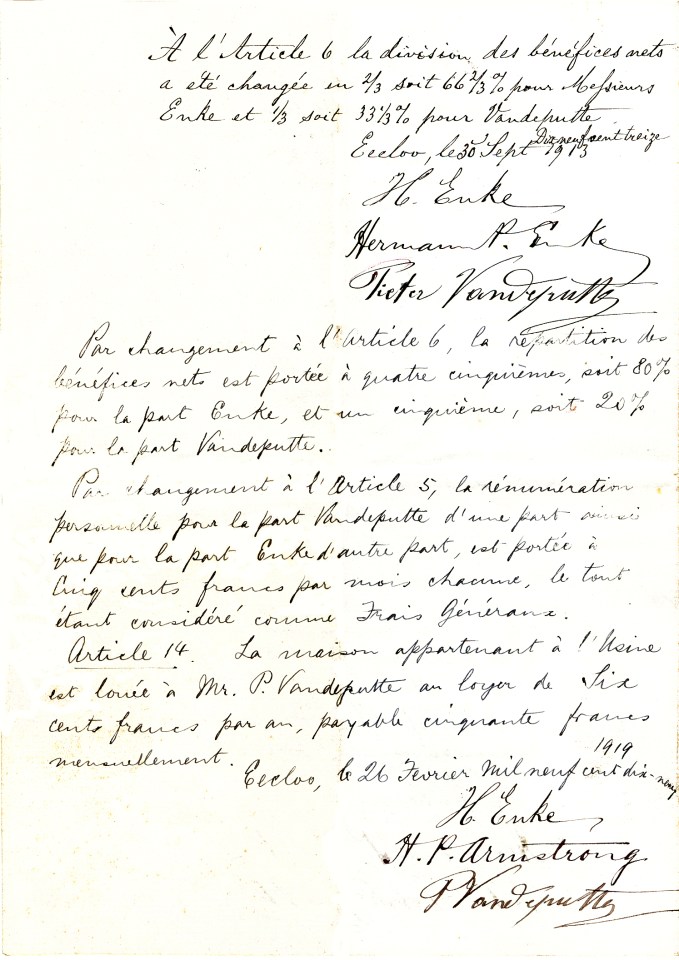 À l'Article 6 la division des bénéfices nets
a eté changée en 2/3 soit 66 2/3 % pour Messieurs
Enke et 1/3 soit 33 1/3 % pour Vandeputte
Dix neuf cent treize
Eecloo, le 30 Sept 1913
H. Enke
Hermann P. Enke
Pieter Vandeputte
Par changement à l'Article 6, la répartition des
bénéfices nets est portée à quatre cinquièmes, soit 80%
pour la part Enke, et un cinquième, soit 20%
pour la part Vandeputte.
Par changement à l'Article 5, la rémunération
personnelle pour la part Vandeputte d'une part ainsi
que pour la part Enke d'autre part, est portée à
Cinq cents francs par mois chacune, le tout
étant considéré comme Frais Généraux.
Article 14. La maison appartenant à l'Usine
est louée à Mr. P. Vandeputte au loyer de Six
cents francs par an, payable cinquante francs
mensuellement.
1919
Eecloo, le 26 Fevrier Mil neuf cent dix-neuf
H. Enke
H. P. Armstrong
P Vandeputte